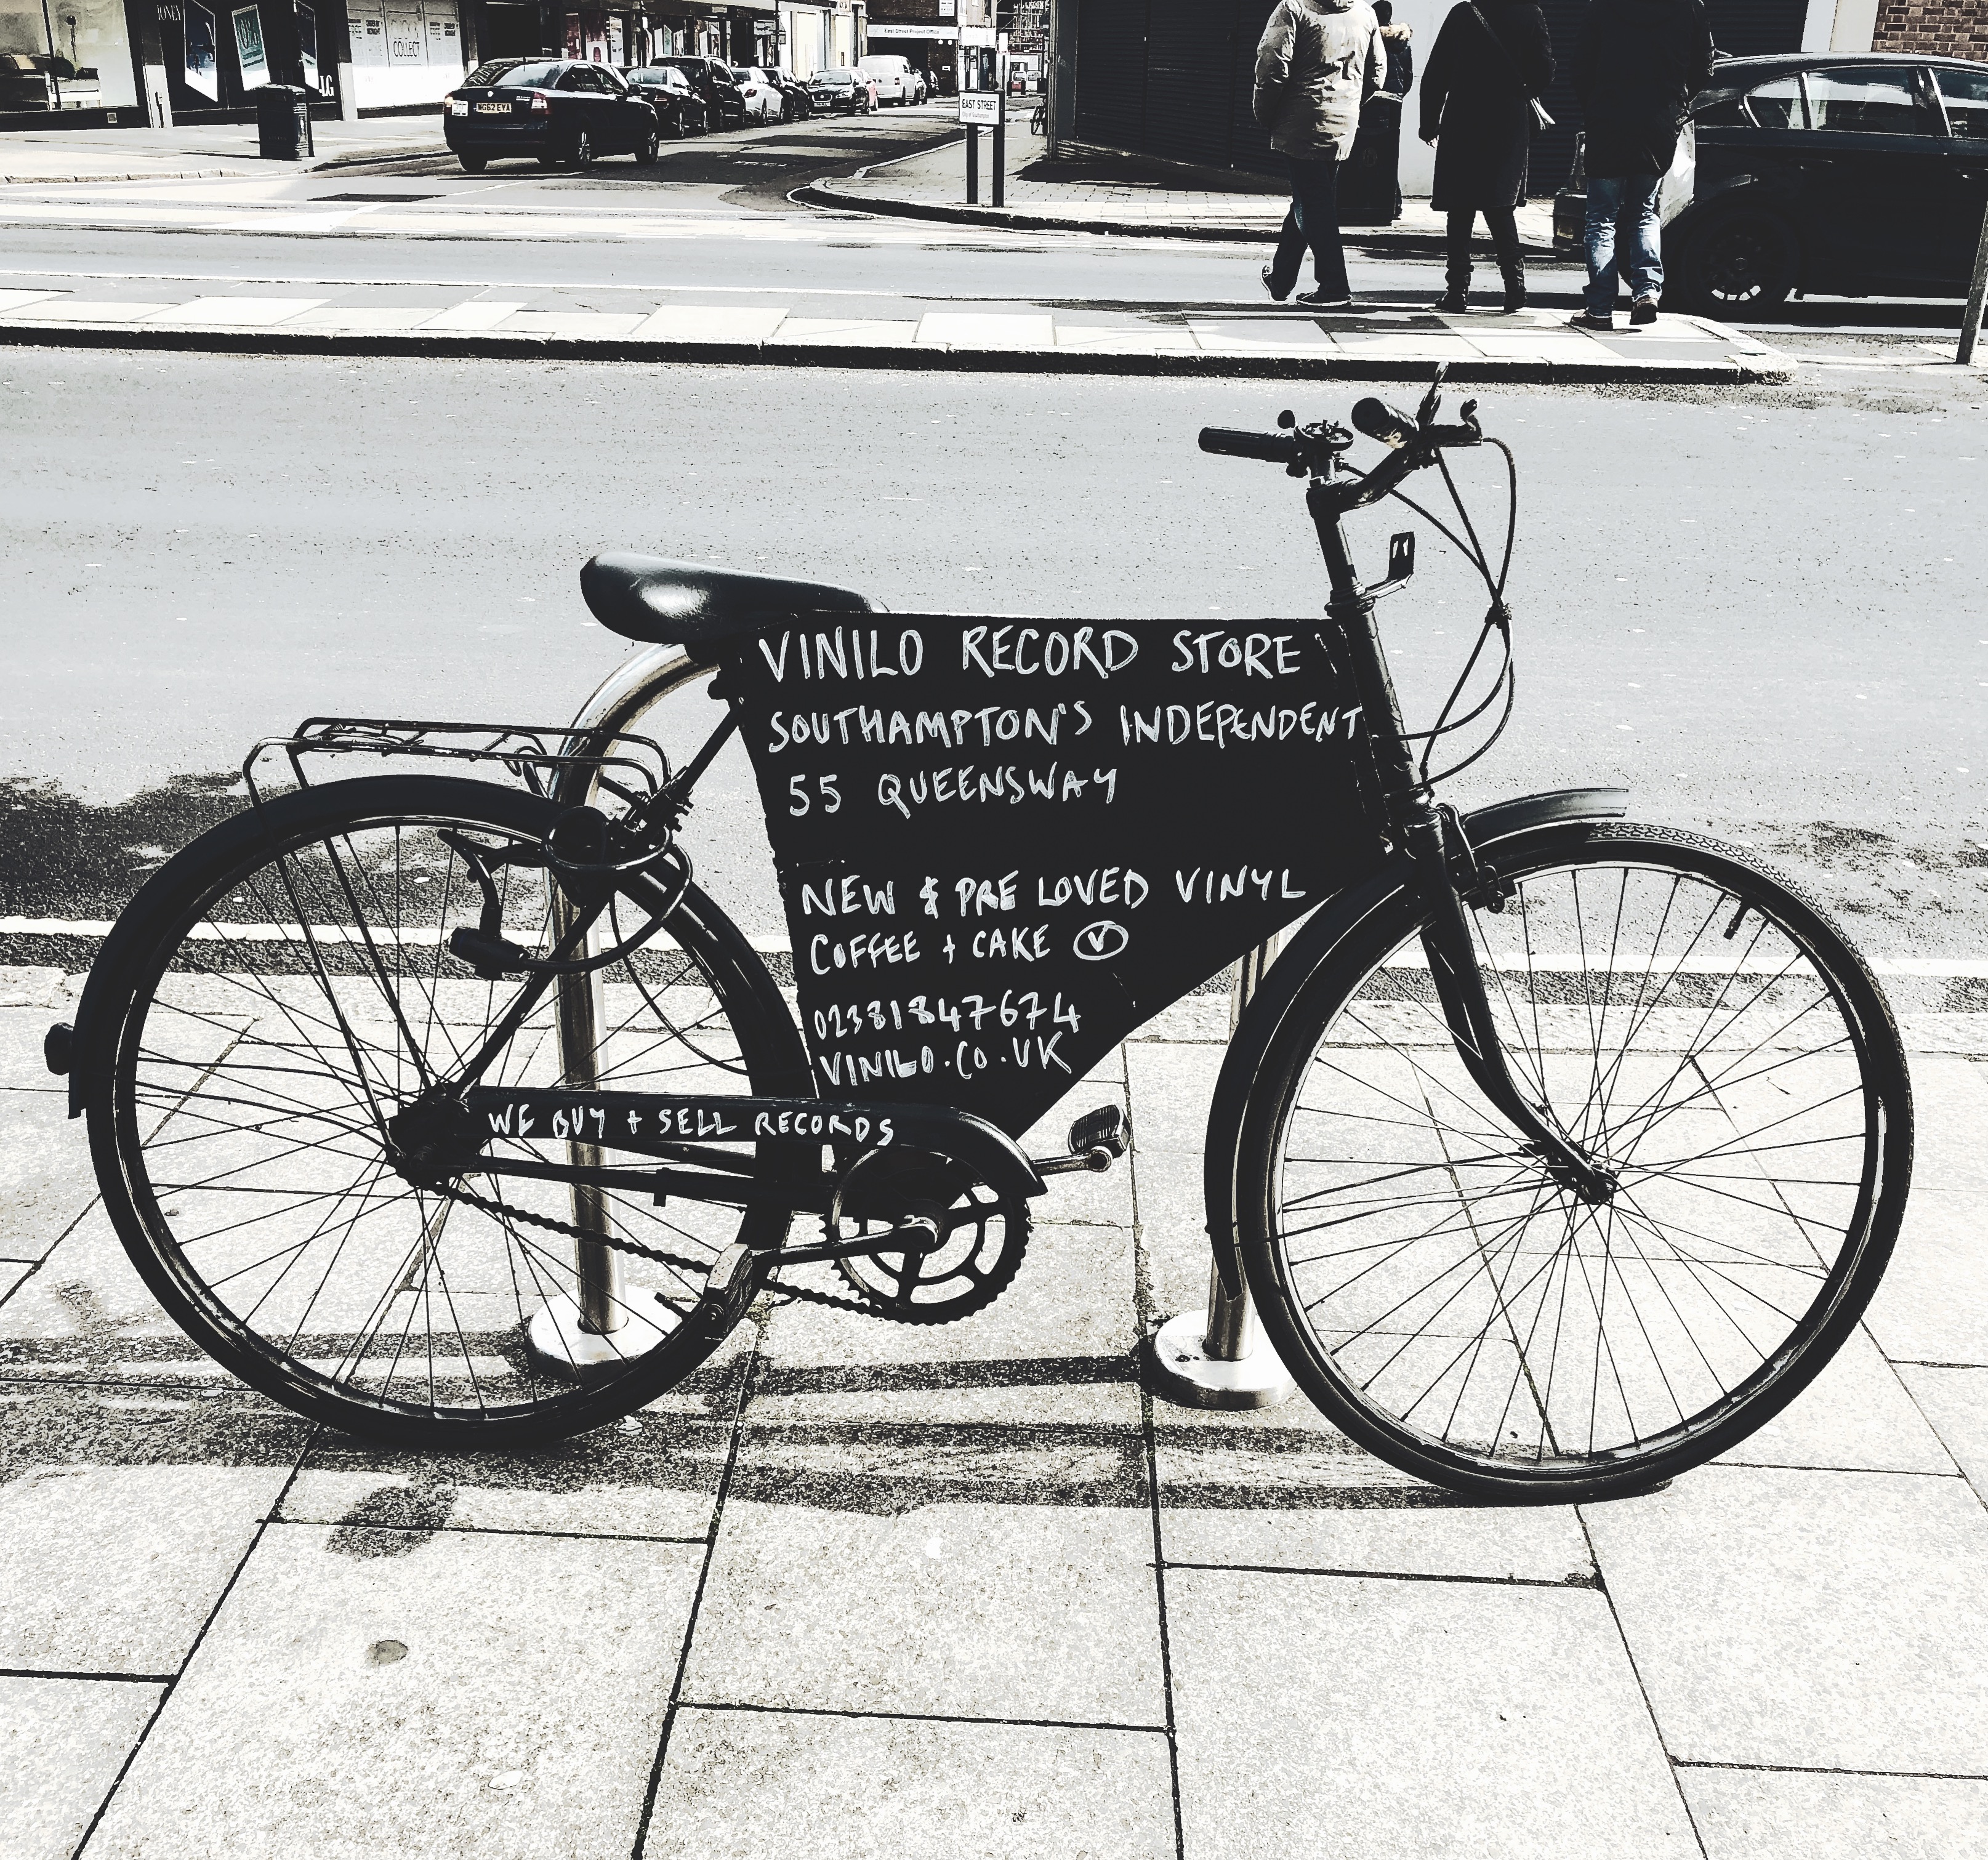 COLLECT
East Street Project Office
WG62 EYA
EAST STREET
VINILO RECORD STORE
SOUTHAMPTON'S INDEPENDENT
55 QUEENSWAY
NEW & PRE LOVED VINYL
COFFEE + CAKE V
02381847674
VINILO.CO.UK
WE BUY + SELL RECORDS